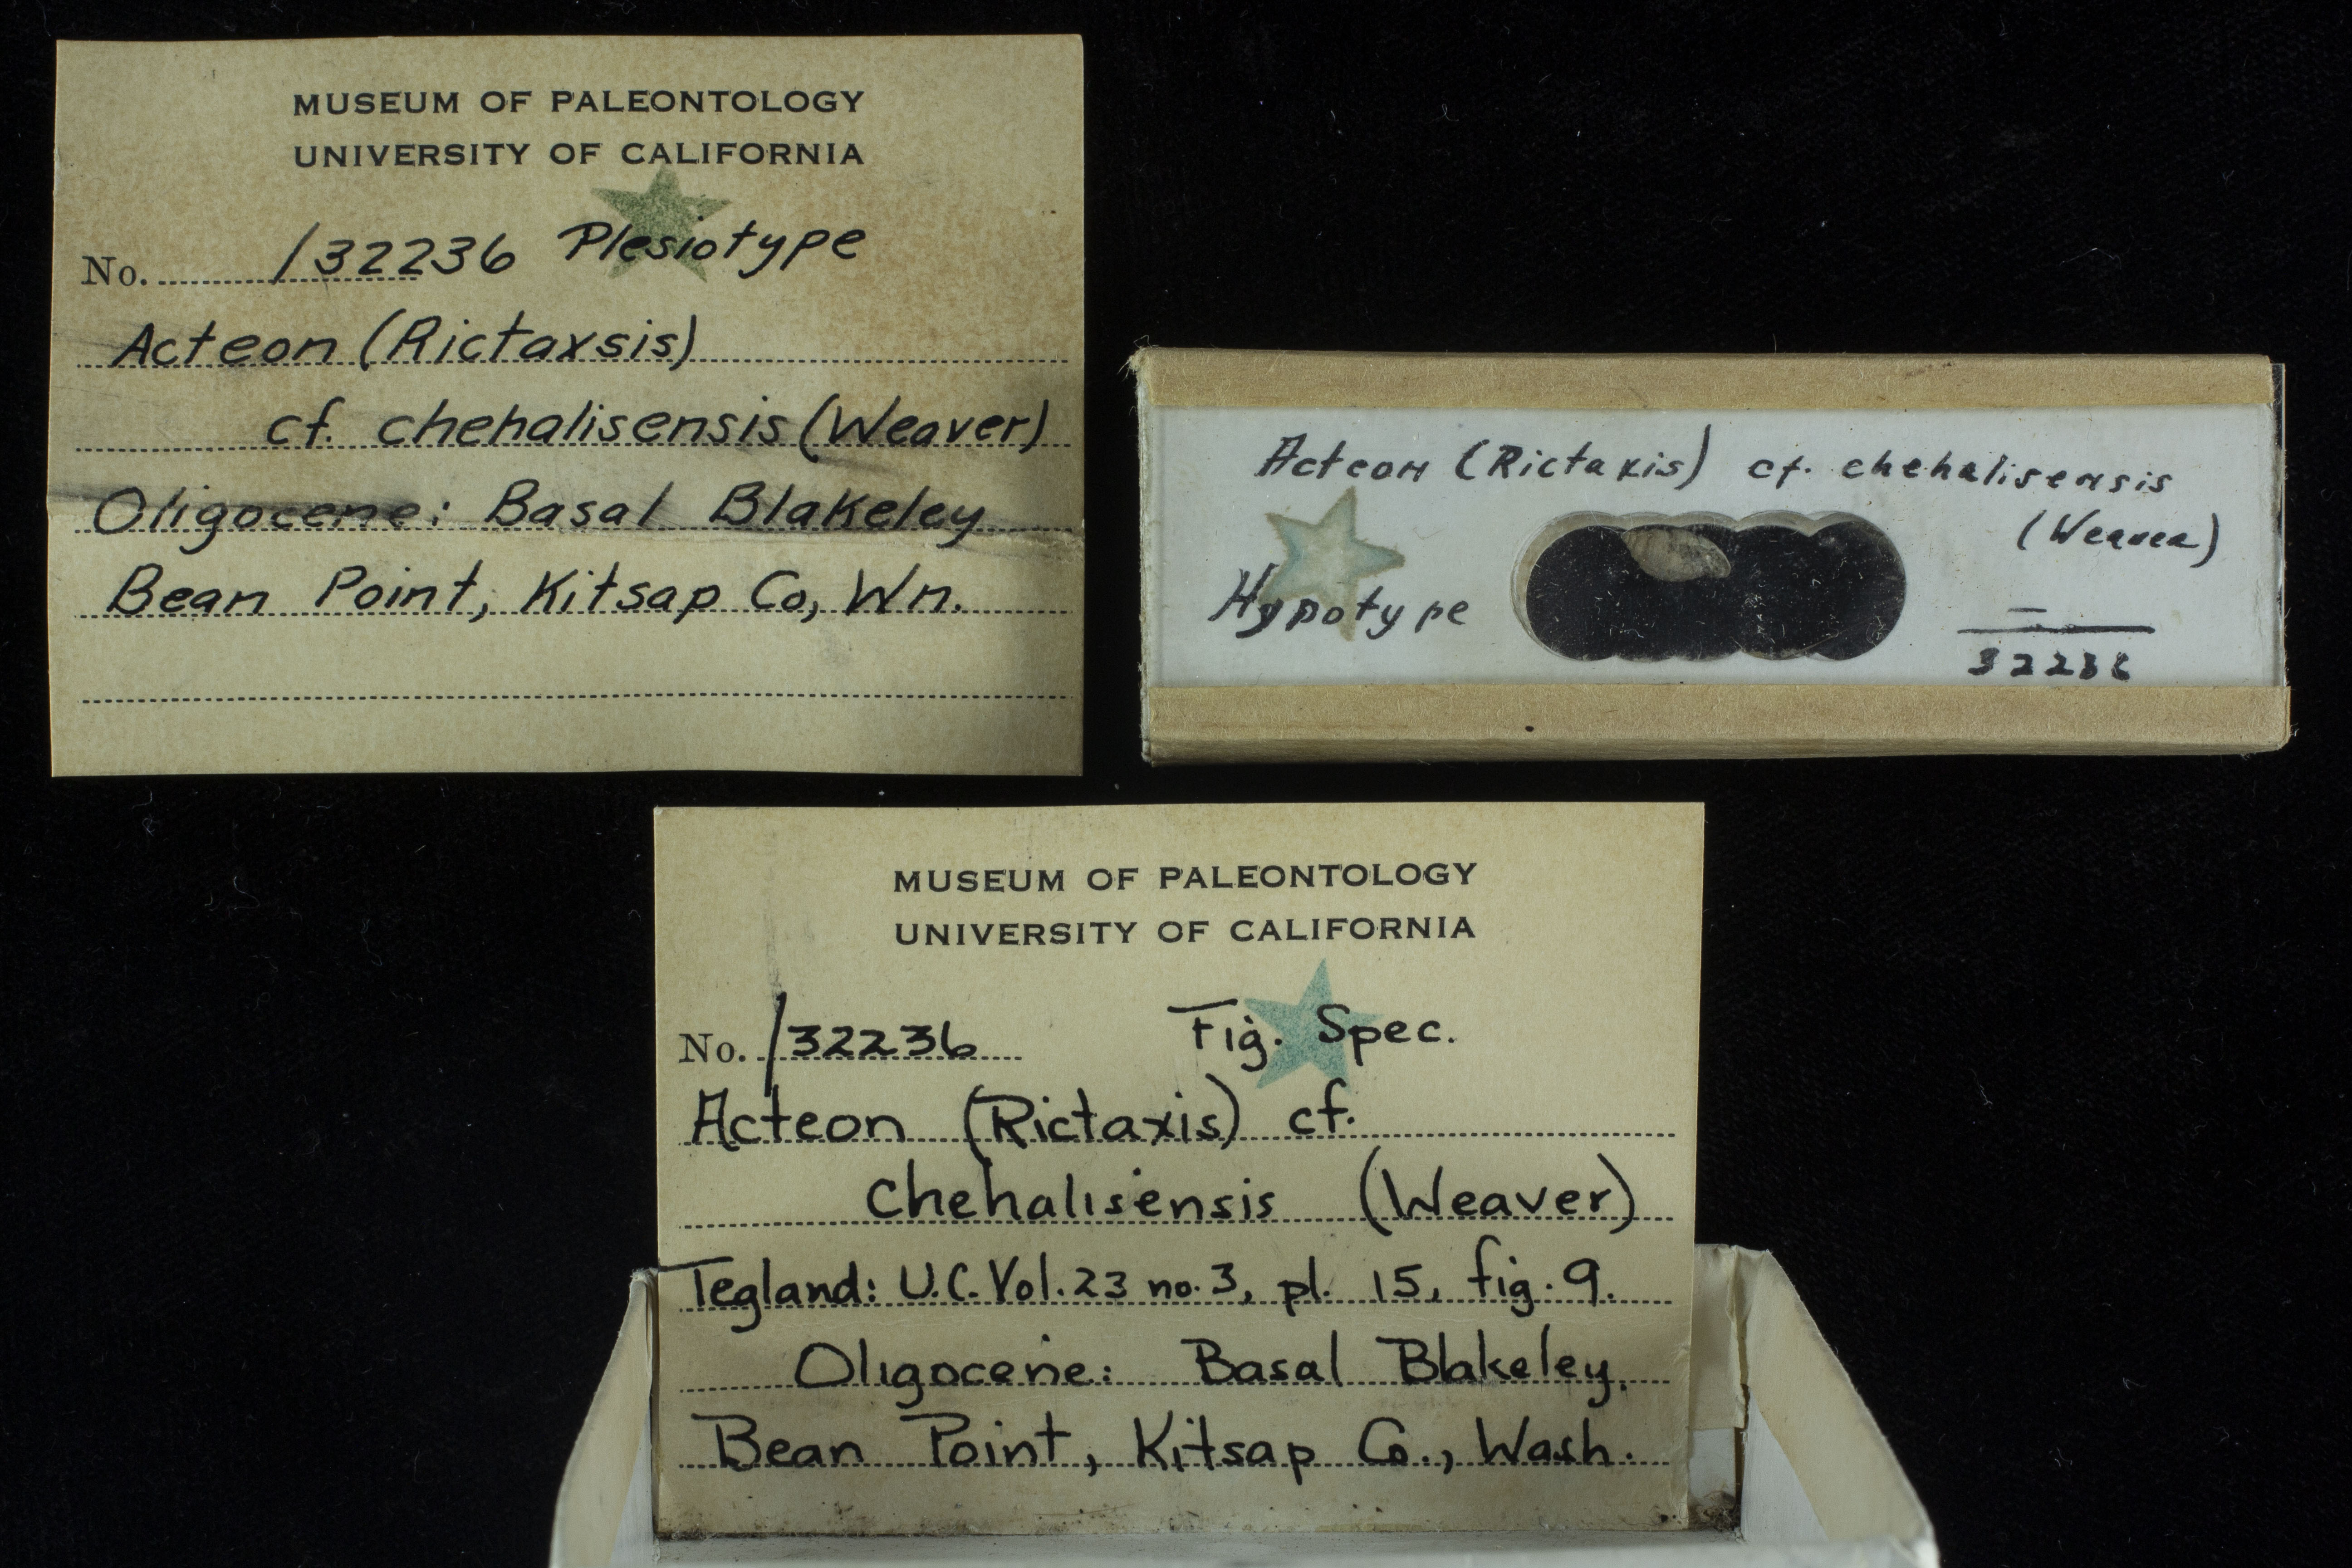 MUSEUM OF PALEONTOLOGY
UNIVERSITY OF CALIFORNIA
No. /32236 Plesiotype
Acteon (Rictaxsis)
cf. chehalisensis (Weaver)
Oligocene: Basal Blakeley
Bean Point, Kitsap Co, Wn.
Acteon (Rictaxis) cf. chehalisensis
(Weaver)
Hypotype
—
32236
MUSEUM OF PALEONTOLOGY
UNIVERSITY OF CALIFORNIA
No. /32236 Fig. Spec.
Acteon (Rictaxis) cf.
chehalisensis (Weaver)
Tegland: U.C. Vol. 23 no. 3, pl. 15, fig. 9.
Oligocene: Basal Blakeley,
Bean Point, Kitsap Co., Wash.